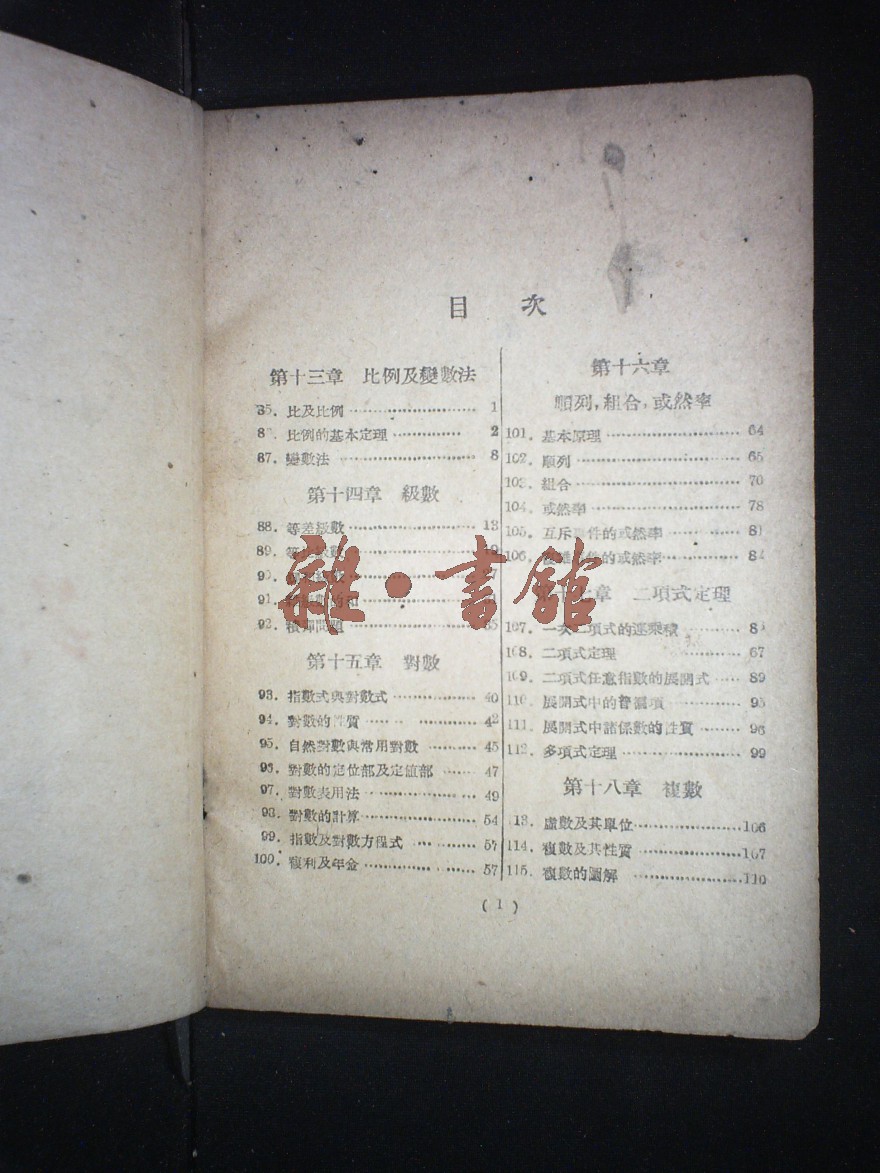 目 次
第十三章 比例及變數法
85. 比及比例 1
8 . 比例的基本定理 2
87. 變數法 8
第十四章 級數
88. 等差級數 13
89.
9
91.
92. 問題
第十五章 對數
93. 指數式與對數式 40
94. 對數的性質 42
95. 自然對數與常用對數 45
96. 對數的定位部及定值部 47
97. 對數表用法 49
98. 對數的計算 54
99. 指數及對數方程式 57
100. 複利及年金 57
第十六章
順列,組合,或然率
101. 基本原理 64
102. 順列 65
103. 組合 70
104. 或然率 78
105. 互斥 件的或然率 81
106. 件的或然率 8
章 二項式定理
107. 一次二項式的連乘積 8
108. 二項式定理 87
109. 二項式任意指數的展開式 89
110. 展開式中的普遍項 95
111. 展開式中諸係數的性質 96
112. 多項式定理 99
第十八章 複數
113. 虛數及其單位 106
114. 複數及其性質 107
115. 複數的圖解 110
(1)
雜·書館